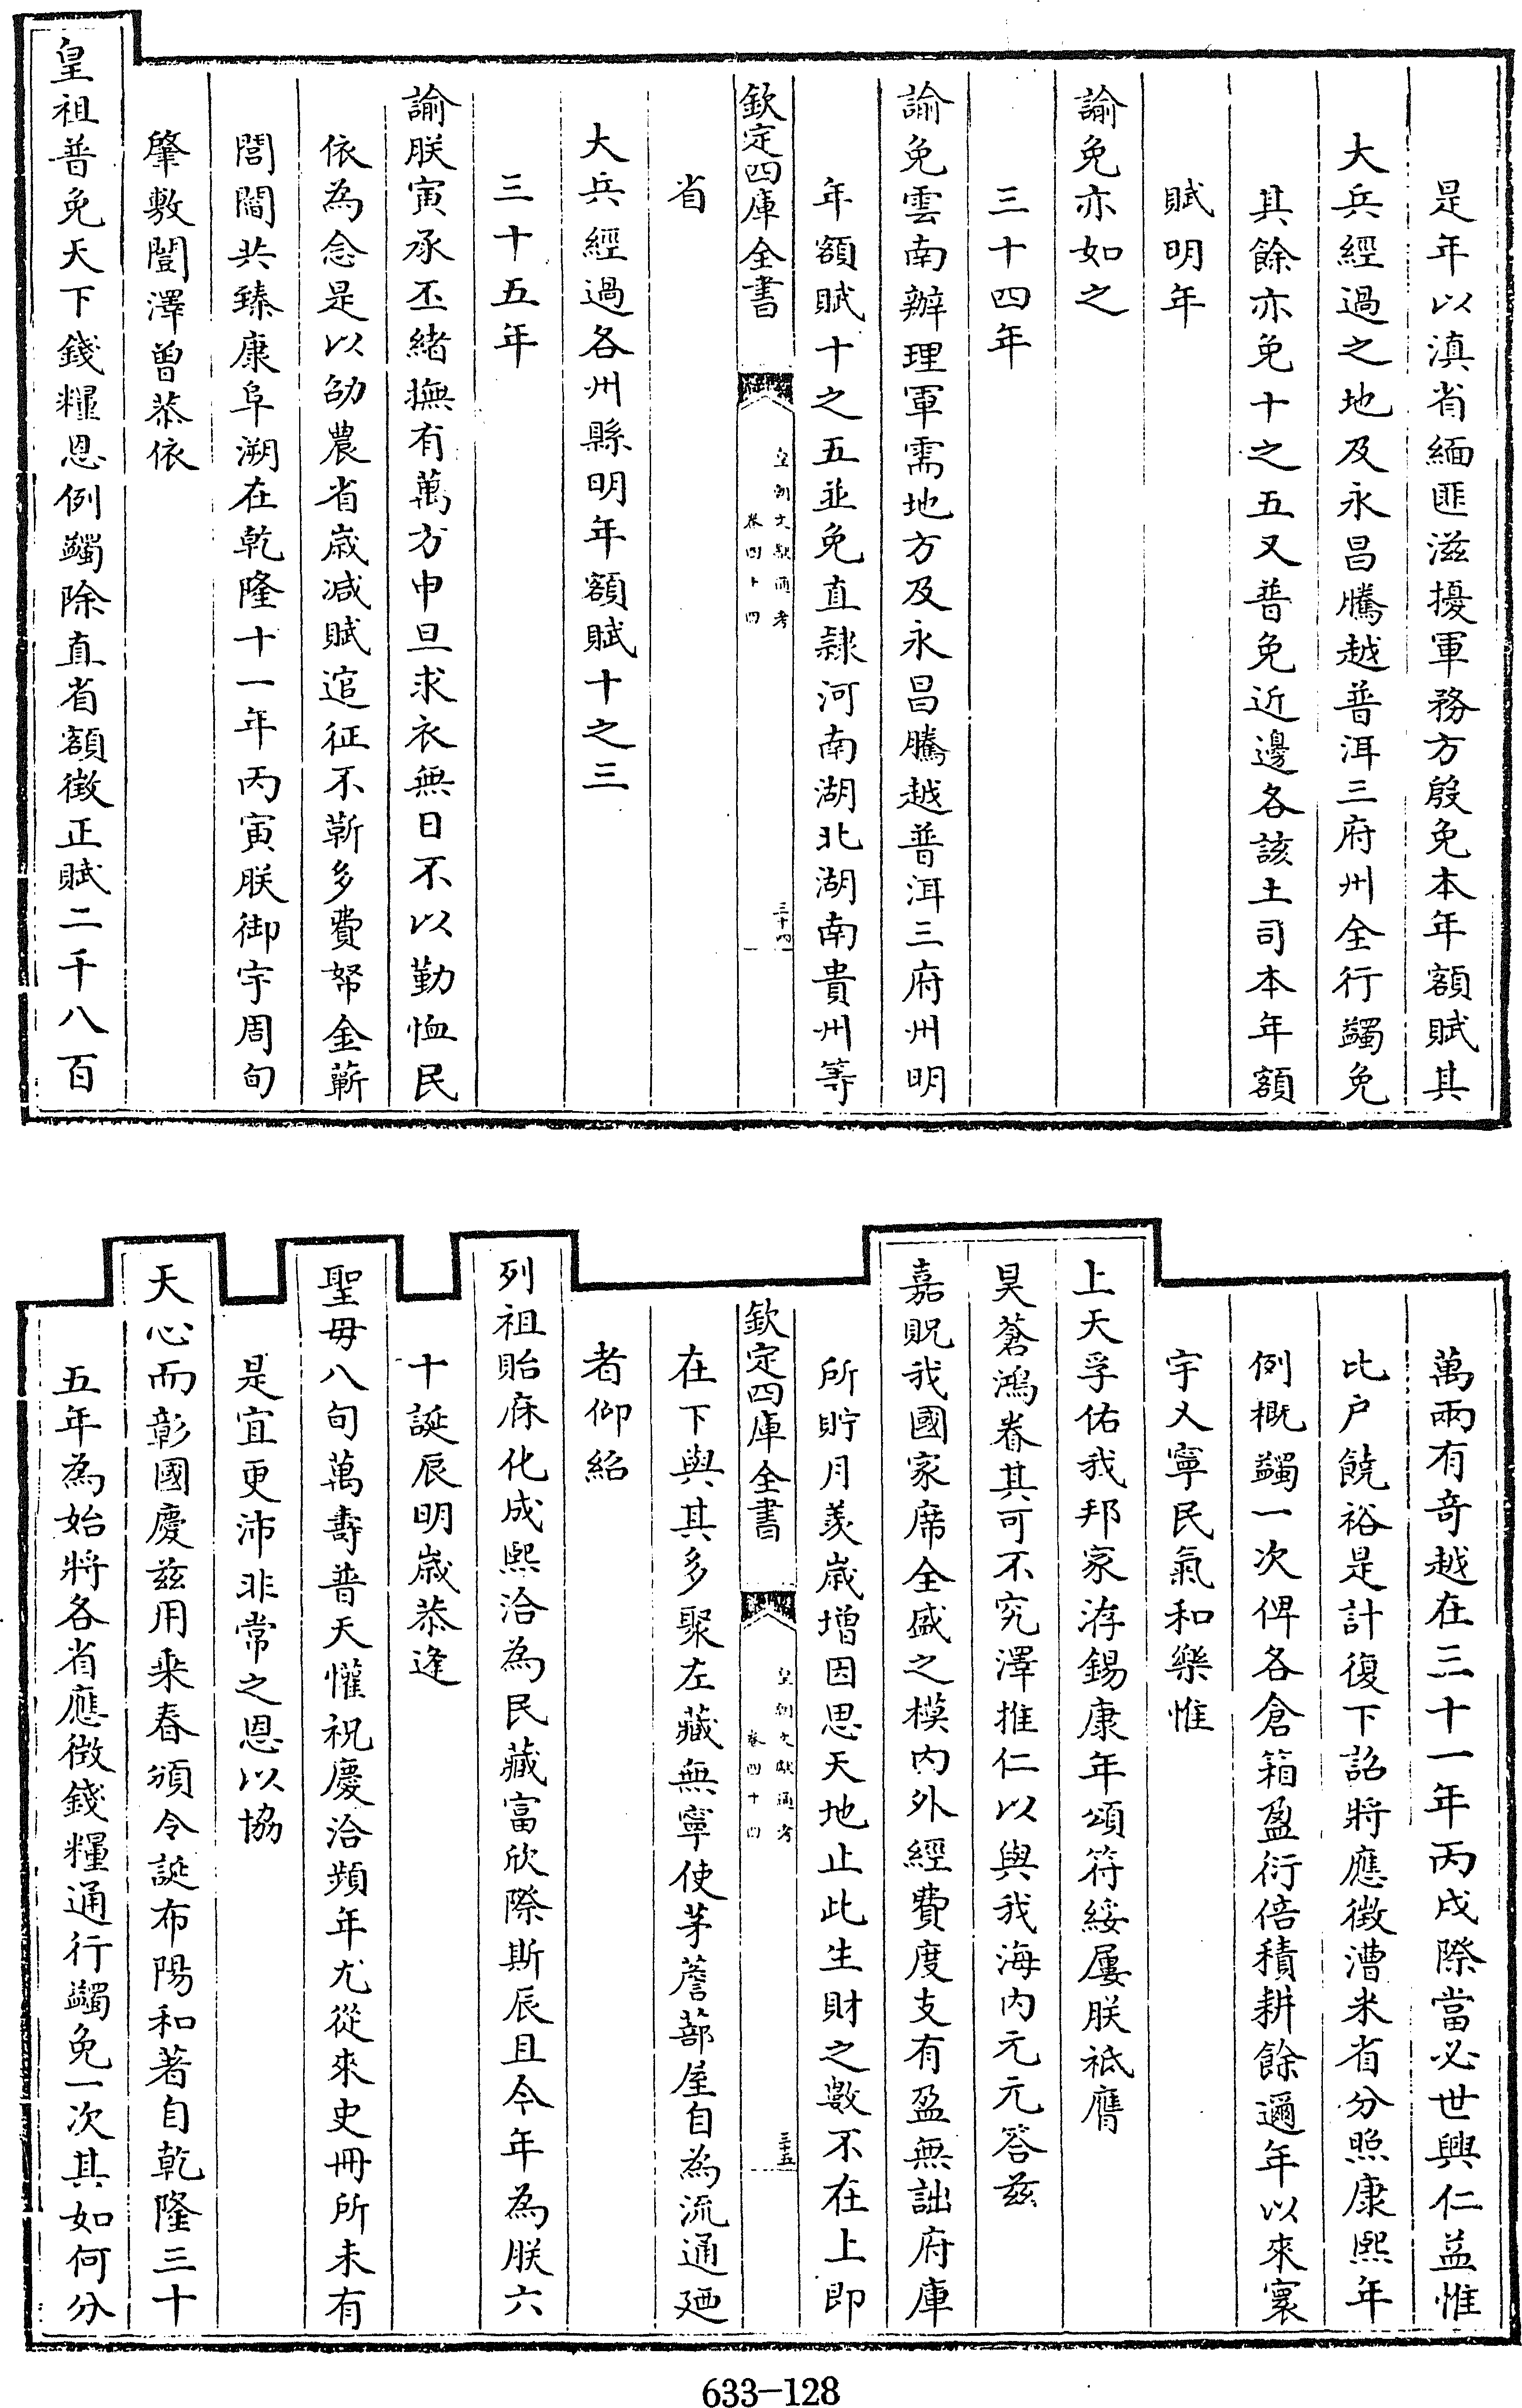 是年以滇省緬匪滋擾軍務方殷免本年額賦其
大兵經過之地及永昌騰越普洱三府州全行蠲免
其餘亦免十之五又普免近邊各該土司本年額
賦明年
諭免亦如之
三十四年
諭免雲南辦理軍需地方及永昌騰越普洱三府州明
年額賦十之五並免直隷河南湖北湖南貴州等
欽定四庫全書
皇朝文獻通考
卷四十四
三十四
省
大兵經過各州縣明年額賦十之三
三十五年
諭朕寅承丕緒撫有萬方申旦求衣無日不以勤恤民
依為念是以劭農省歲減賦逭征不靳多費帑金蘄
閭閻共臻康阜溯在乾隆十一年丙寅朕御宇周旬
肇敷闓澤曾恭依
皇祖普免天下錢糧恩例蠲除直省額徵正賦二千八百
萬兩有奇越在三十一年丙戌際當必世興仁益惟
比户饒裕是計復下詔將應徵漕米省分照康熙年
例概蠲一次俾各倉箱盈衍倍積耕餘邇年以來寰
宇乂寧民氣和樂惟
上天孚佑我邦家洊錫康年頌符綏屢朕祗膺
昊蒼鴻眷其可不究澤推仁以與我海内元元答兹
嘉貺我國家席全盛之模内外經費度支有盈無詘府庫
所貯月羡歲增因思天地止此生財之數不在上即
欽定四庫全書
皇朝文獻通考
卷四十四
三十五
在下與其多聚左藏無寧使茅簷蔀屋自為流通廼
者仰紹
列祖貽庥化成熙洽為民藏富欣際斯辰且今年為朕六
十誕辰明歲恭逢
聖母八旬萬壽普天懽祝慶洽頻年尤從來史冊所未有
是宜更沛非常之恩以協
天心而彰國慶兹用乘春頒令誕布陽和著自乾隆三十
五年為始將各省應徵錢糧通行蠲免一次其如何分
633-128